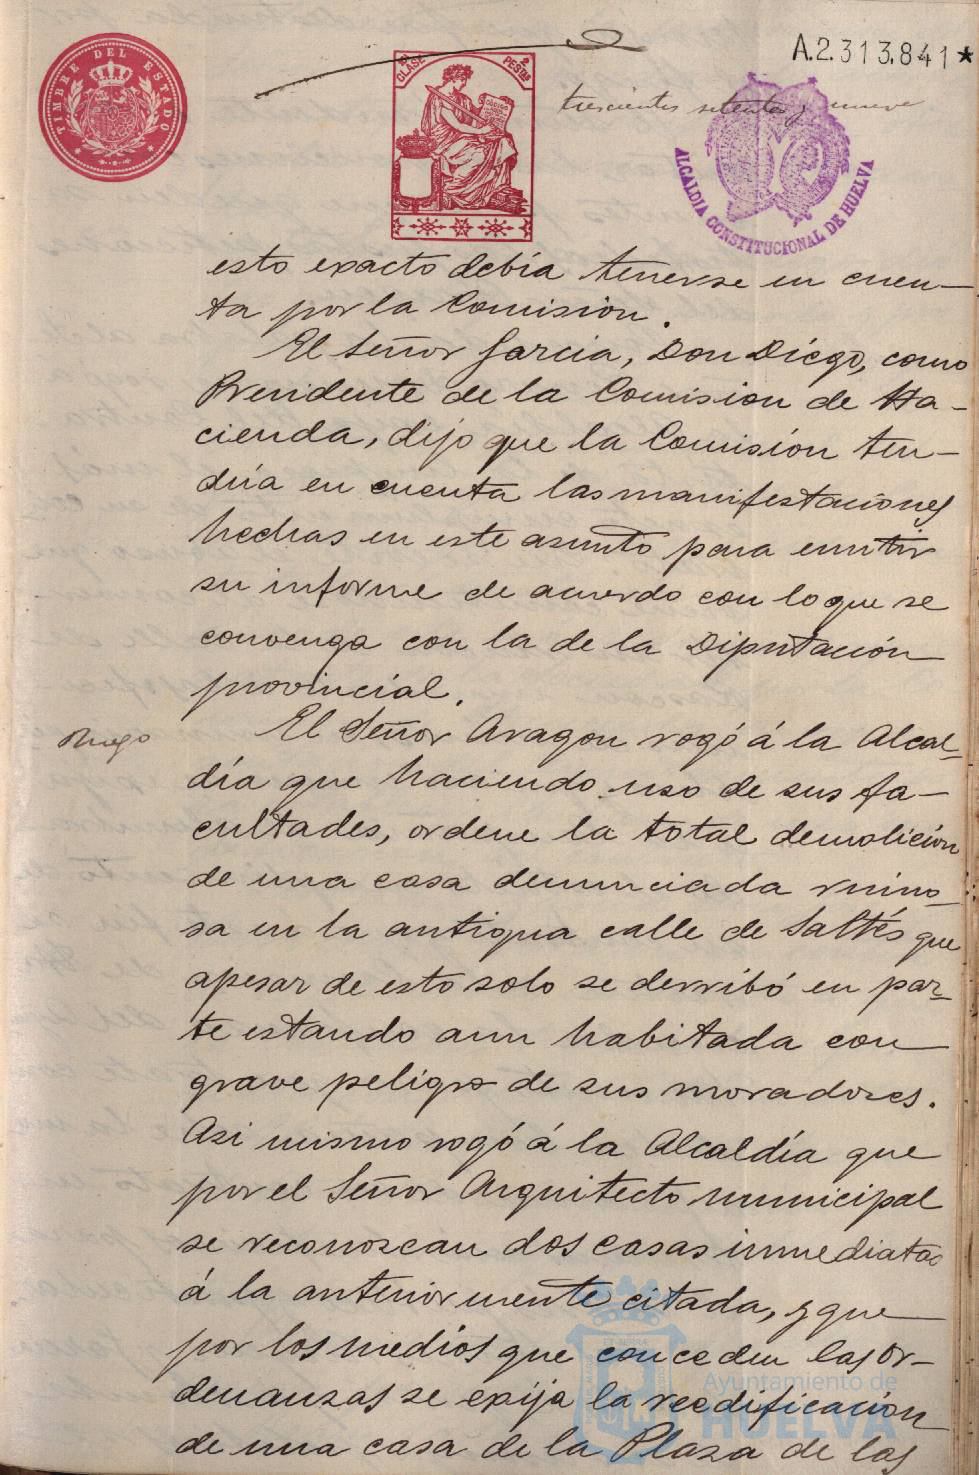 TIMBRE DEL ESTADO
8ª CLASE 2 PESTAS
A.2.313.841*
trescientos setenta y nueve
ALCALDIA CONSTITUCIONAL DE HUELVA
esto exacto debía tenerse en cuen-
ta por la Comisión.
El Señor Garcia, Don Diego, como
Presidente de la Comision de Ha-
cienda, dijo que la Comisión ten-
dria en cuenta las manifestaciones
hechas en este asunto para emitir
su informe de acuerdo con lo que se
convenga con la de la Diputación
provincial.
Ruego
El Señor Aragon rogó á la Alcal-
día que haciendo uso de sus fa-
cultades, ordene la total demolición
de una casa denunciada ruino-
sa en la antigua calle de Saltés que
apesar de esto solo se derribó en par-
te estando aun habitada con
grave peligro de sus moradores.
Asi mismo rogó á la Alcaldía que
por el Señor Arquitecto municipal
se reconozcan dos casas inmediatas
á la anteriormente citada, y que
por los medios que conceden las Or-
denanzas se exija la reedificación
de una casa de la Plaza de las
Ayuntamiento de
HUELVA